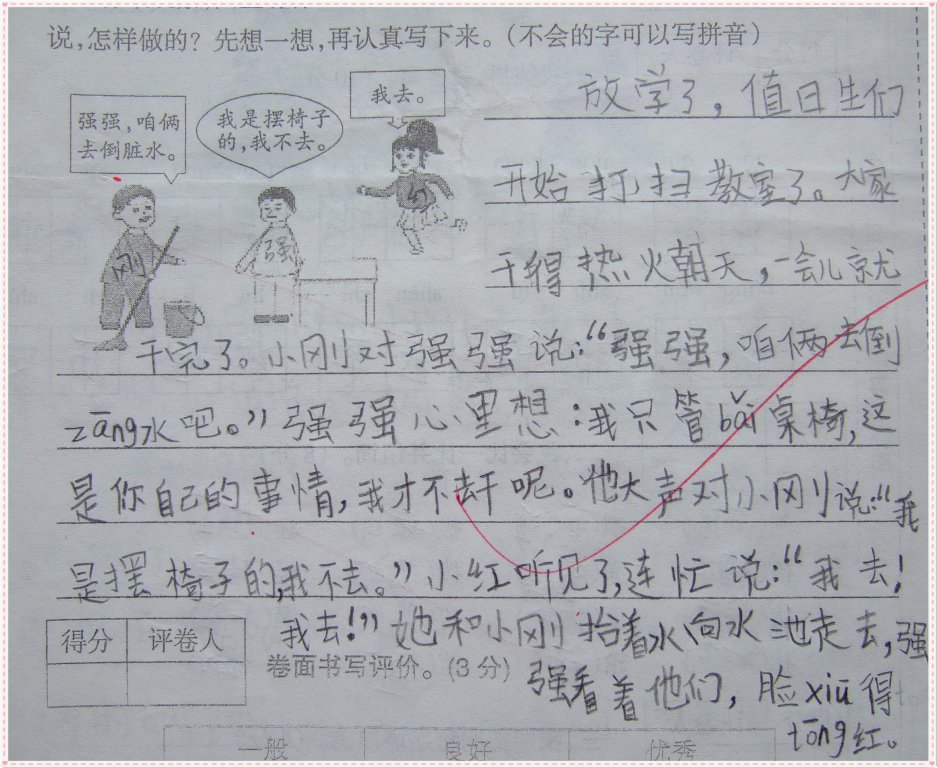 说,怎样做的?先想一想,再认真写下来。(不会的字可以写拼音)
强强,咱俩
去倒脏水。
我是摆椅子
的,我不去。
我去。
刚
强
红
放学了,值日生们
开始打扫教室了。大家
干得热火朝天,一会儿就
干完了。小刚对强强说:“强强,咱俩去倒
zāng水吧。”强强心里想:我只管bǎi桌椅,这
是你自己的事情,我才不去干呢。他大声对小刚说:“我
是摆椅子的,我不去。”小红听见了,连忙说:“我去!
我去!”她和小刚抬着水向水池走去,强
强看着他们,脸xiū得
tōng红。
得分 评卷人
卷面书写评价。(3分)
一般 良好 优秀